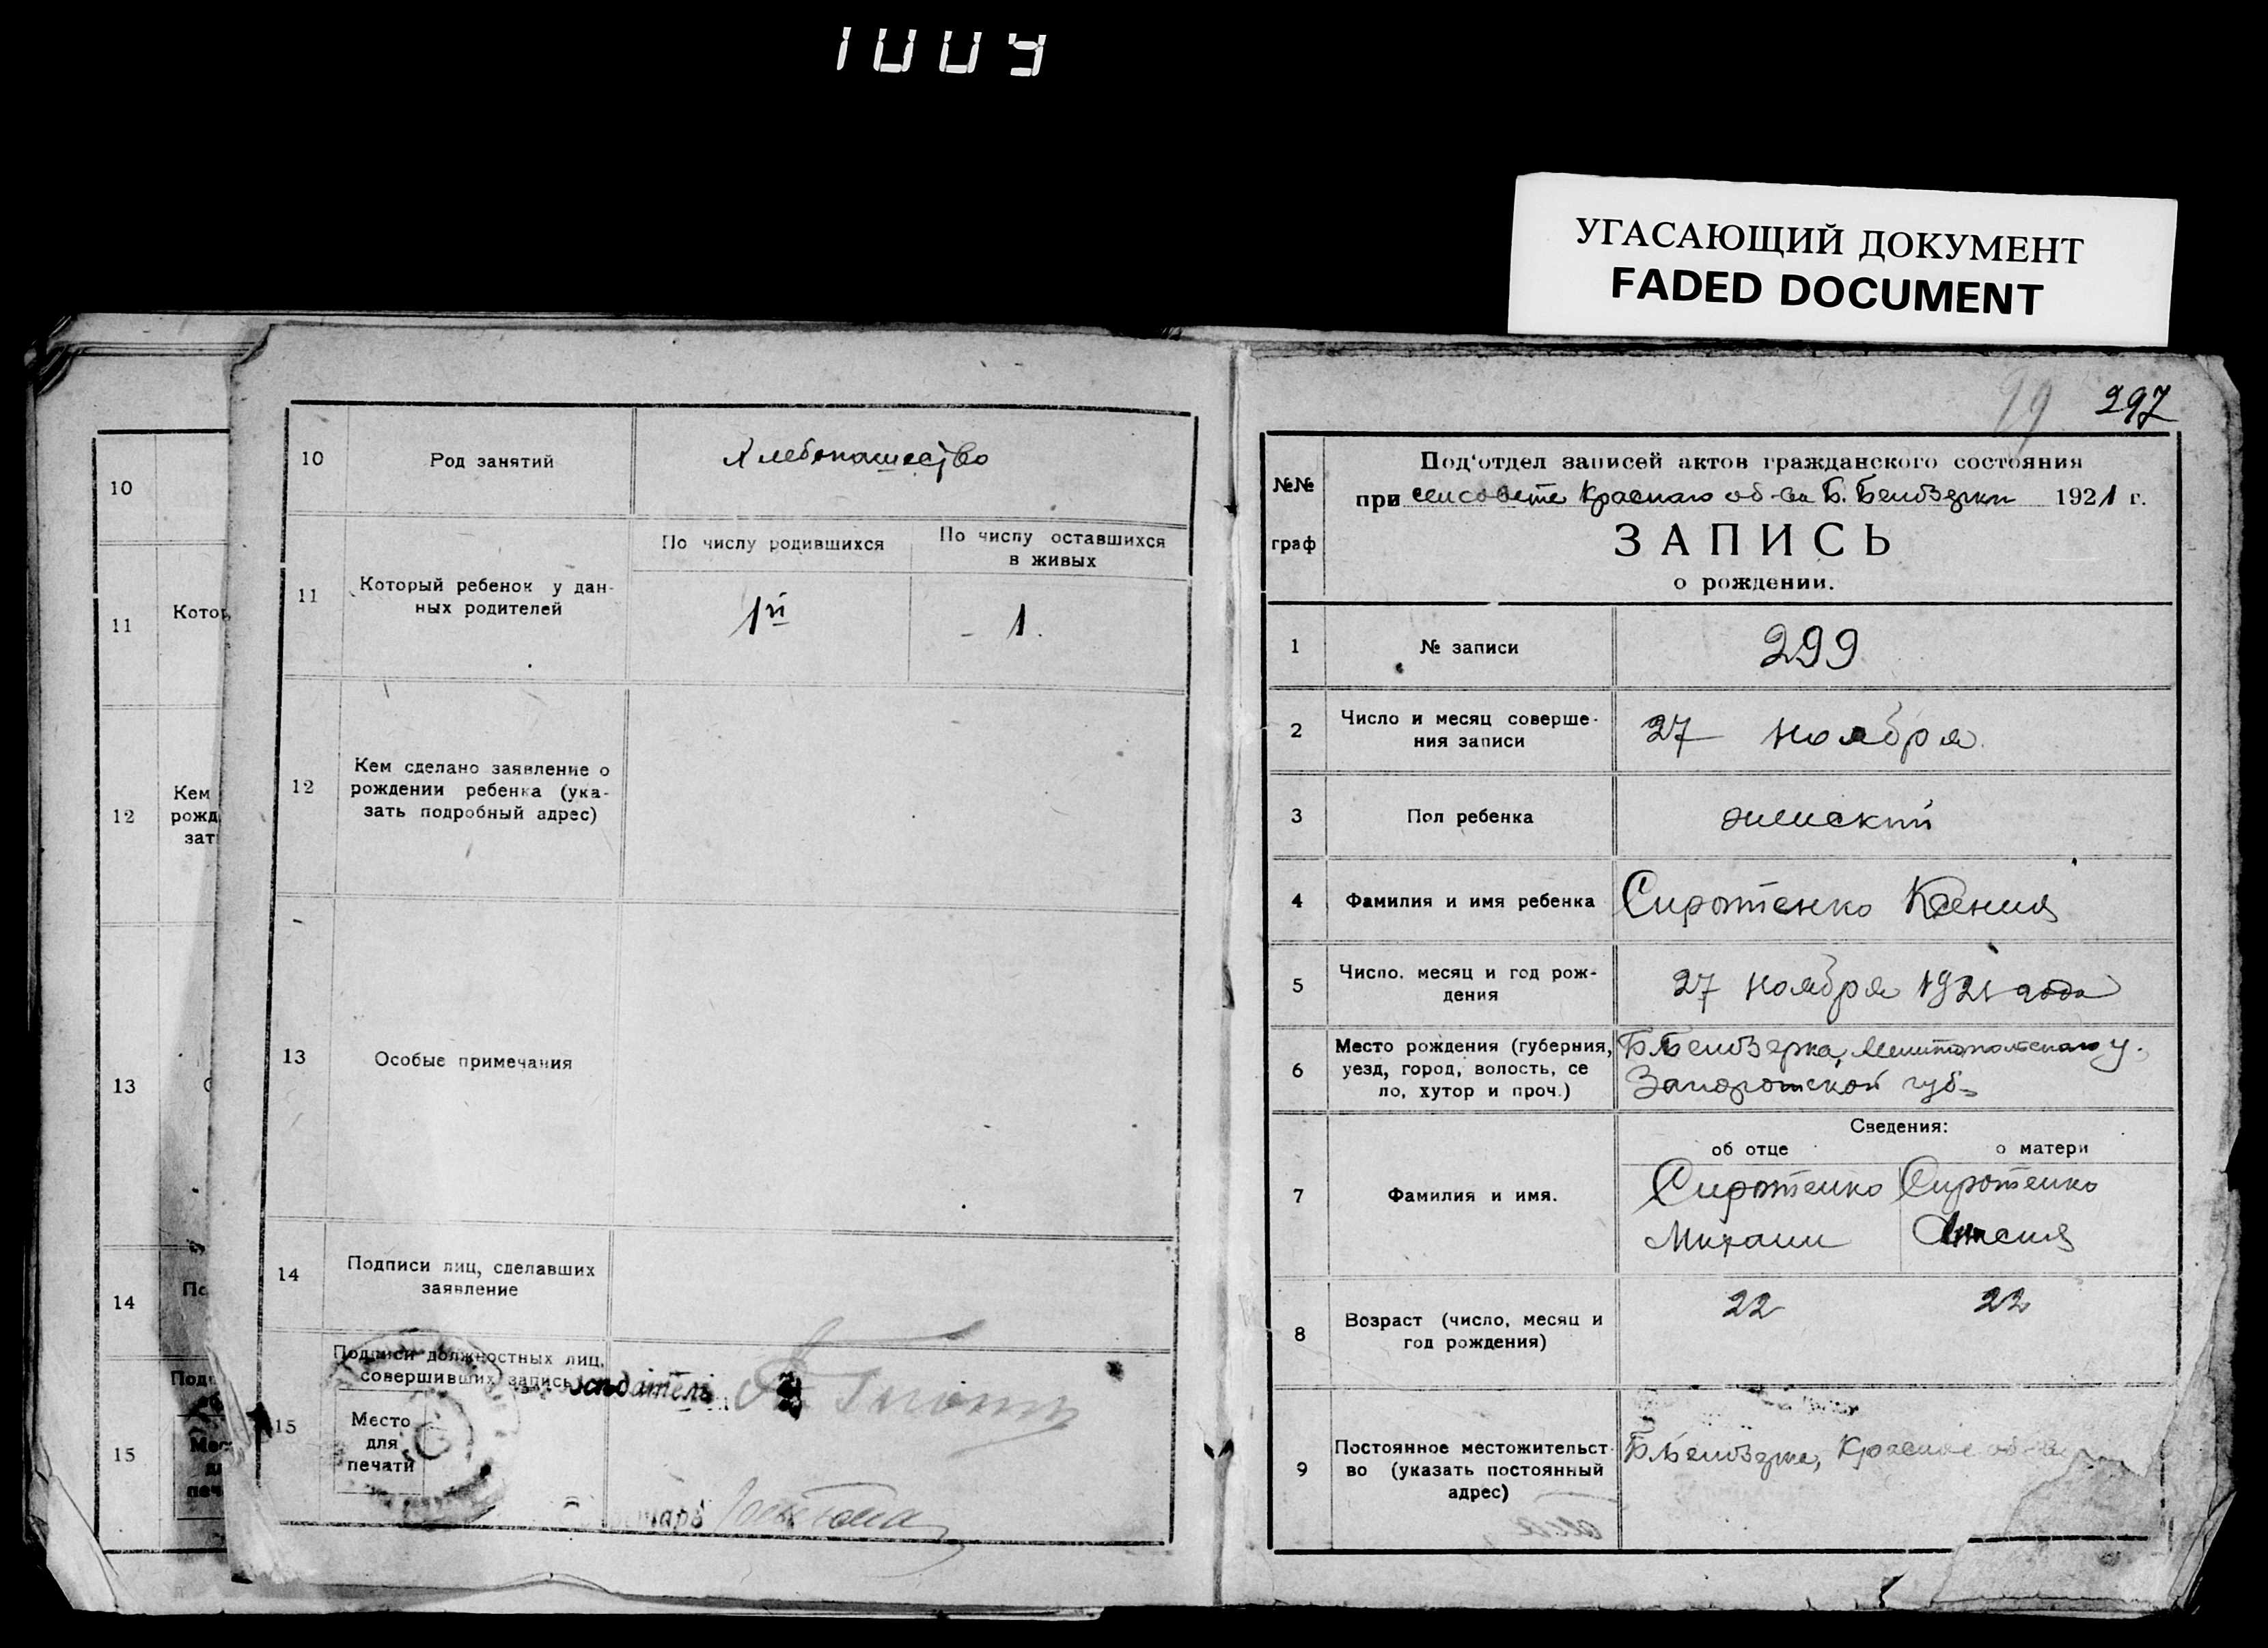 1009
УГАСАЮЩИЙ ДОКУМЕНТ
FADED DOCUMENT
10
11
Котор
12
Кем
рожд
зат
13
14
15
10
Род занятий
Хлебопашество
11
Который ребенок у дан-
ных родителей
По числу родившихся
По числу оставшихся
в живых
1й
- 1.
12
Кем сделано заявление о
рождении ребенка (ука-
зать подробный адрес)
13
Особые примечания
14
Подписи лиц, сделавших
заявление
15
Подписи должностных лиц,
совершивших запись
Место
для
печати
99 297
№№
граф
Под'отдел записей актов гражданского состояния
при сельсовете Краснаго об-ва Б. Белозерки 1921 г.
ЗАПИСЬ
о рождении.
1
№ записи
299
2
Число и месяц соверше-
ния записи
27 ноября
3
Пол ребенка
женский
4
Фамилия и имя ребенка
Сиротенко Ксения
5
Число, месяц и год рож-
дения
27 ноября 1921 года
6
Место рождения (губерния,
уезд, город, волость, се
ло, хутор и проч.)
Б. Белозерка, Мелитопольскаго у.
Запорожской губ.
Сведения:
об отце
о матери
7
Фамилия и имя.
Сиротенко
Михаил
Сиротенко
8
Возраст (число, месяц и
год рождения)
22
22
9
Постоянное местожительст-
во (указать постоянный
адрес)
Б. Белозерка, Красное об-во